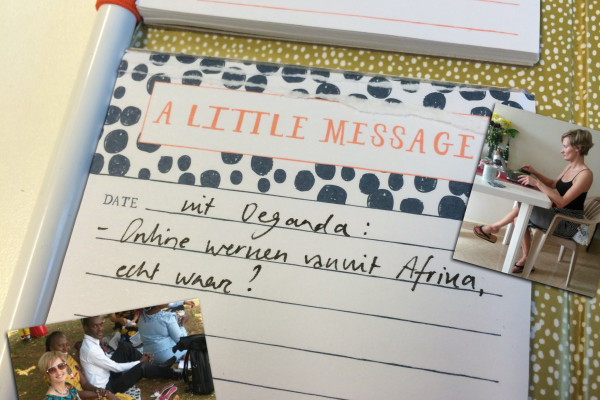 A LITTLE MESSAGE
DATE uit Oeganda:
- Online werken vanuit Afrika,
echt waar?